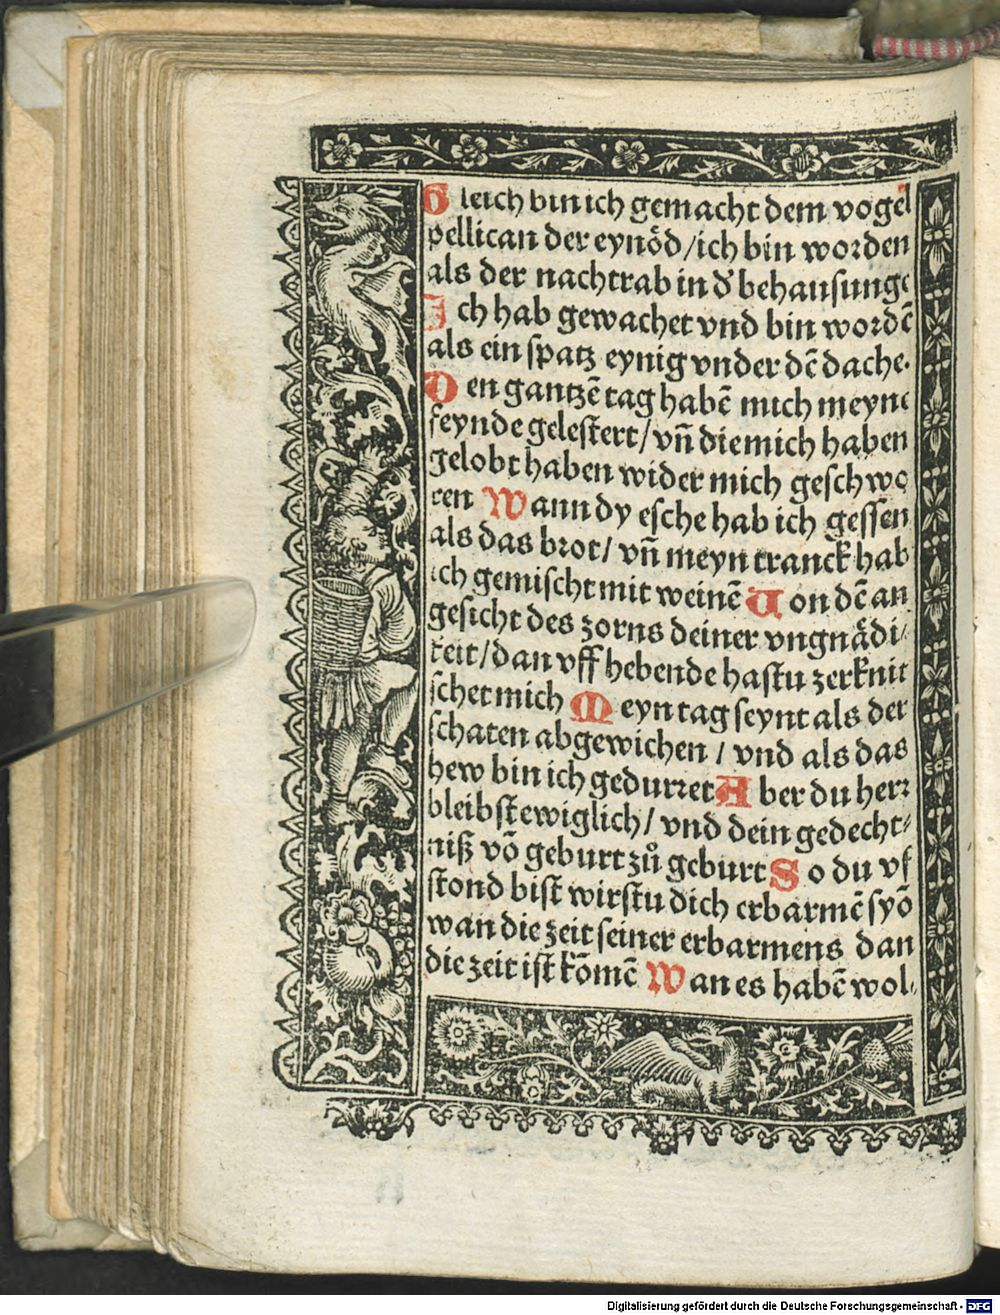 Gleich bin ich gemacht dem vogel
pellican der eynöd/ich bin worden
als der nachtrab in d̕ behausunge
Ich hab gewachet vnd bin wordē
als ein spatz eynig vnder dē dache.
Den gantzē tag habē mich meyne
feynde gelestert/vñ die mich haben
gelobt haben wider mich geschwo
ren Wann dy esche hab ich gessen
als das brot/vñ meyn tranck hab
ich gemischt mit weinē Von dē an
gesicht des zorns deiner vngnädi/
keit/dan vff hebende hastu zerknit
schet mich Meyn tag seynt als der
schaten abgewichen / vnd als das
hew bin ich gedurret Aber du herr
bleibst ewiglich/ vnd dein gedecht⸗
niß võ geburt zů geburt So du vf
stond bist wirstu dich erbarmē syõ
wan die zeit seiner erbarmens dan
die zeit ist kōmē Wan es habē wol
Digitalisierung gefördert durch die Deutsche Forschungsgemeinschaft - DFG